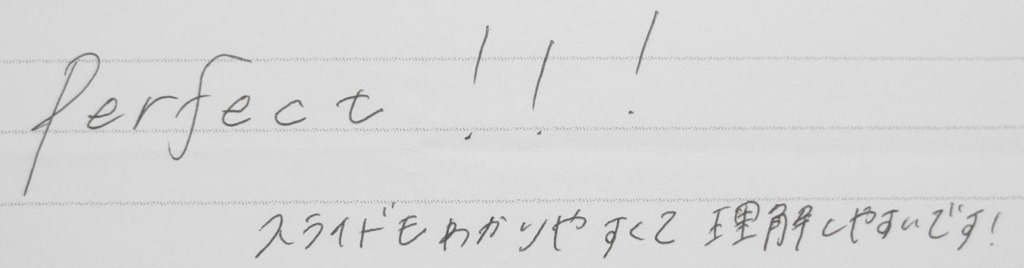 Perfect !!!
スライドもわかりやすくて 理解しやすいです!